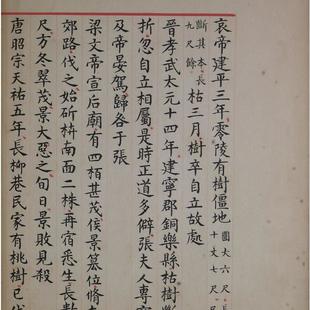 哀帝建平三年零陵有樹僵地圍丈六尺長十丈七尺
斷其本長九尺餘枯三月樹卒自立故處
晉孝武太元十四年建寧郡銅樂縣枯樹斷
折忽自立相屬是時正道多僻張夫人專寵
及帝晏駕歸咎于張
梁文帝宣后廟有四柏甚茂侯景篡位脩南
郊路伐之始斫南面二株再宿悉生長數
尺方冬翠茂景大惡之旬日景敗見殺
唐昭宗天祐五年長柳巷民家有桃樹已伐